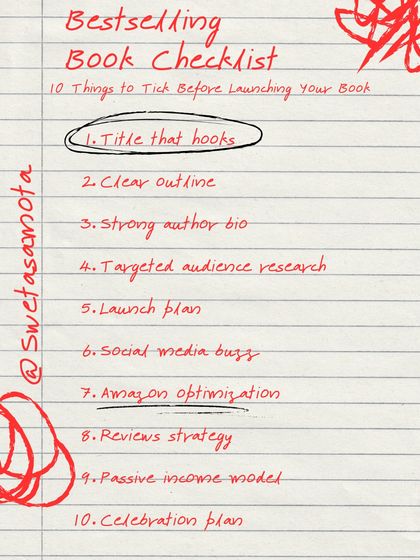 Bestselling
Book Checklist
10 Things to Tick Before Launching Your Book
1. Title that hooks
2. Clear outline
3. Strong author bio
4. Targeted audience research
5. Launch plan
6. Social media buzz
7. Amazon optimization
8. Reviews strategy
9. Passive income model
10. Celebration plan
@swetasamota